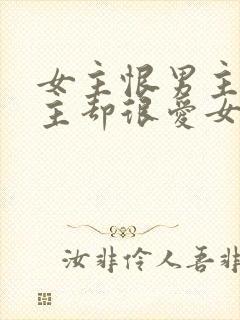 女主恨男主
主却很爱女
汝非伶人吾非